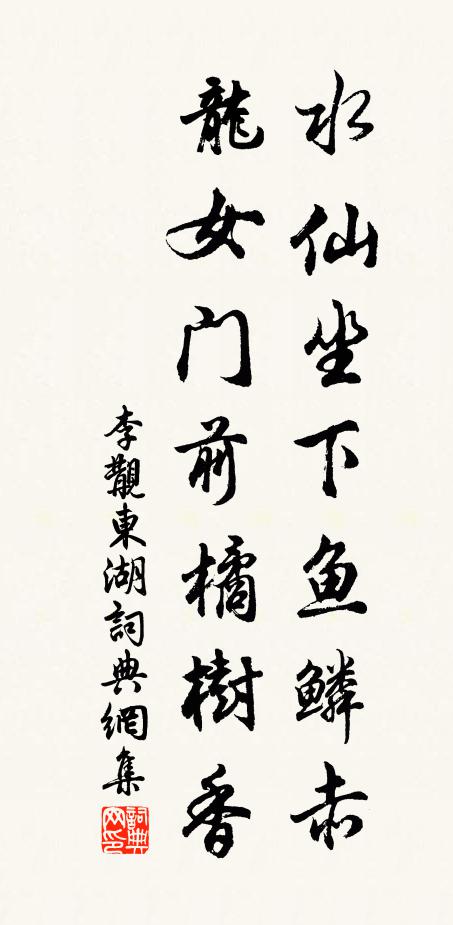 水仙坐下鱼鳞赤
龍女门前橘樹香
李覯東湖詞典網集
詞典网印